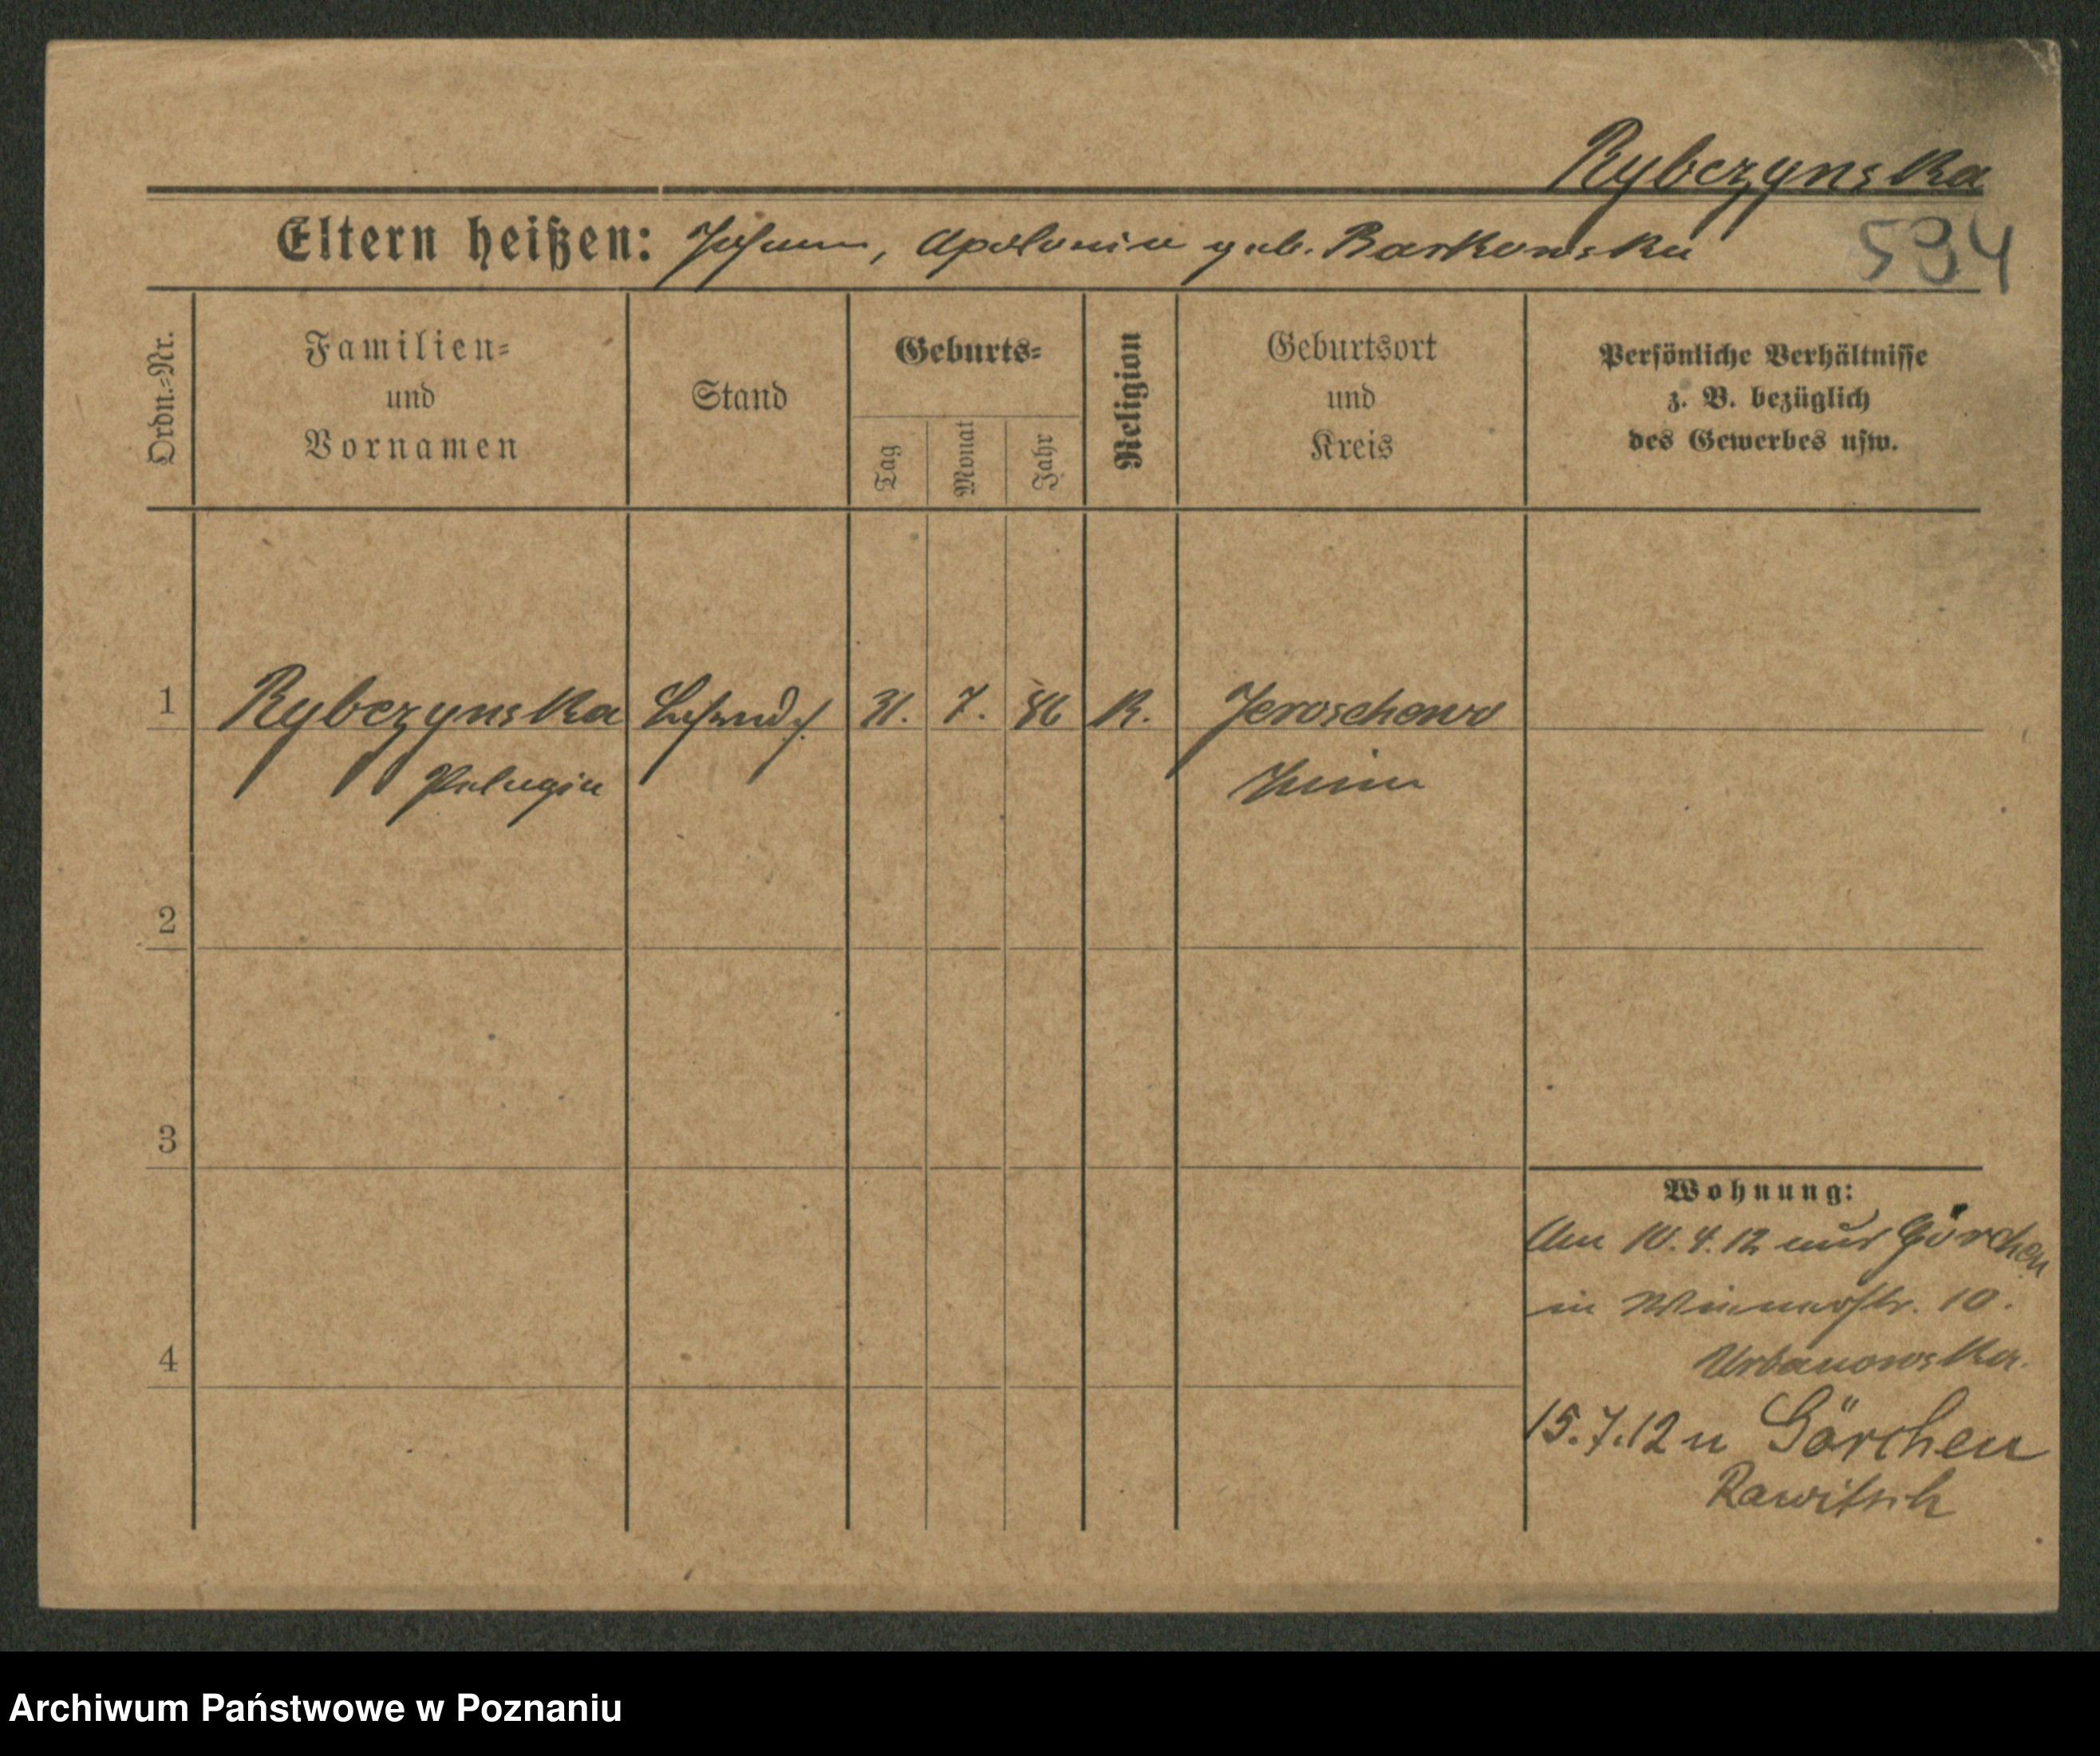 Rybczynska
Eltern heißen: Johann, Apolonia geb. Barkowska
594
Ordn.-Nr.
Familien-
und
Vornamen
Stand
Geburts-
Tag
Monat
Jahr
Religion
Geburtsort
und
Kreis
Persönliche Verhältnisse
z. B. bezüglich
des Gewerbes usw.
1 Rybczynska 31. 7. 86 K. Jeroschewo
Pelagia Znin
2
3
4
Wohnung:
Am 10.4.12 aus Görchen
in 10.
Urbanowska.
15.7.12 n Görchen
Rawitsch
Archiwum Państwowe w Poznaniu